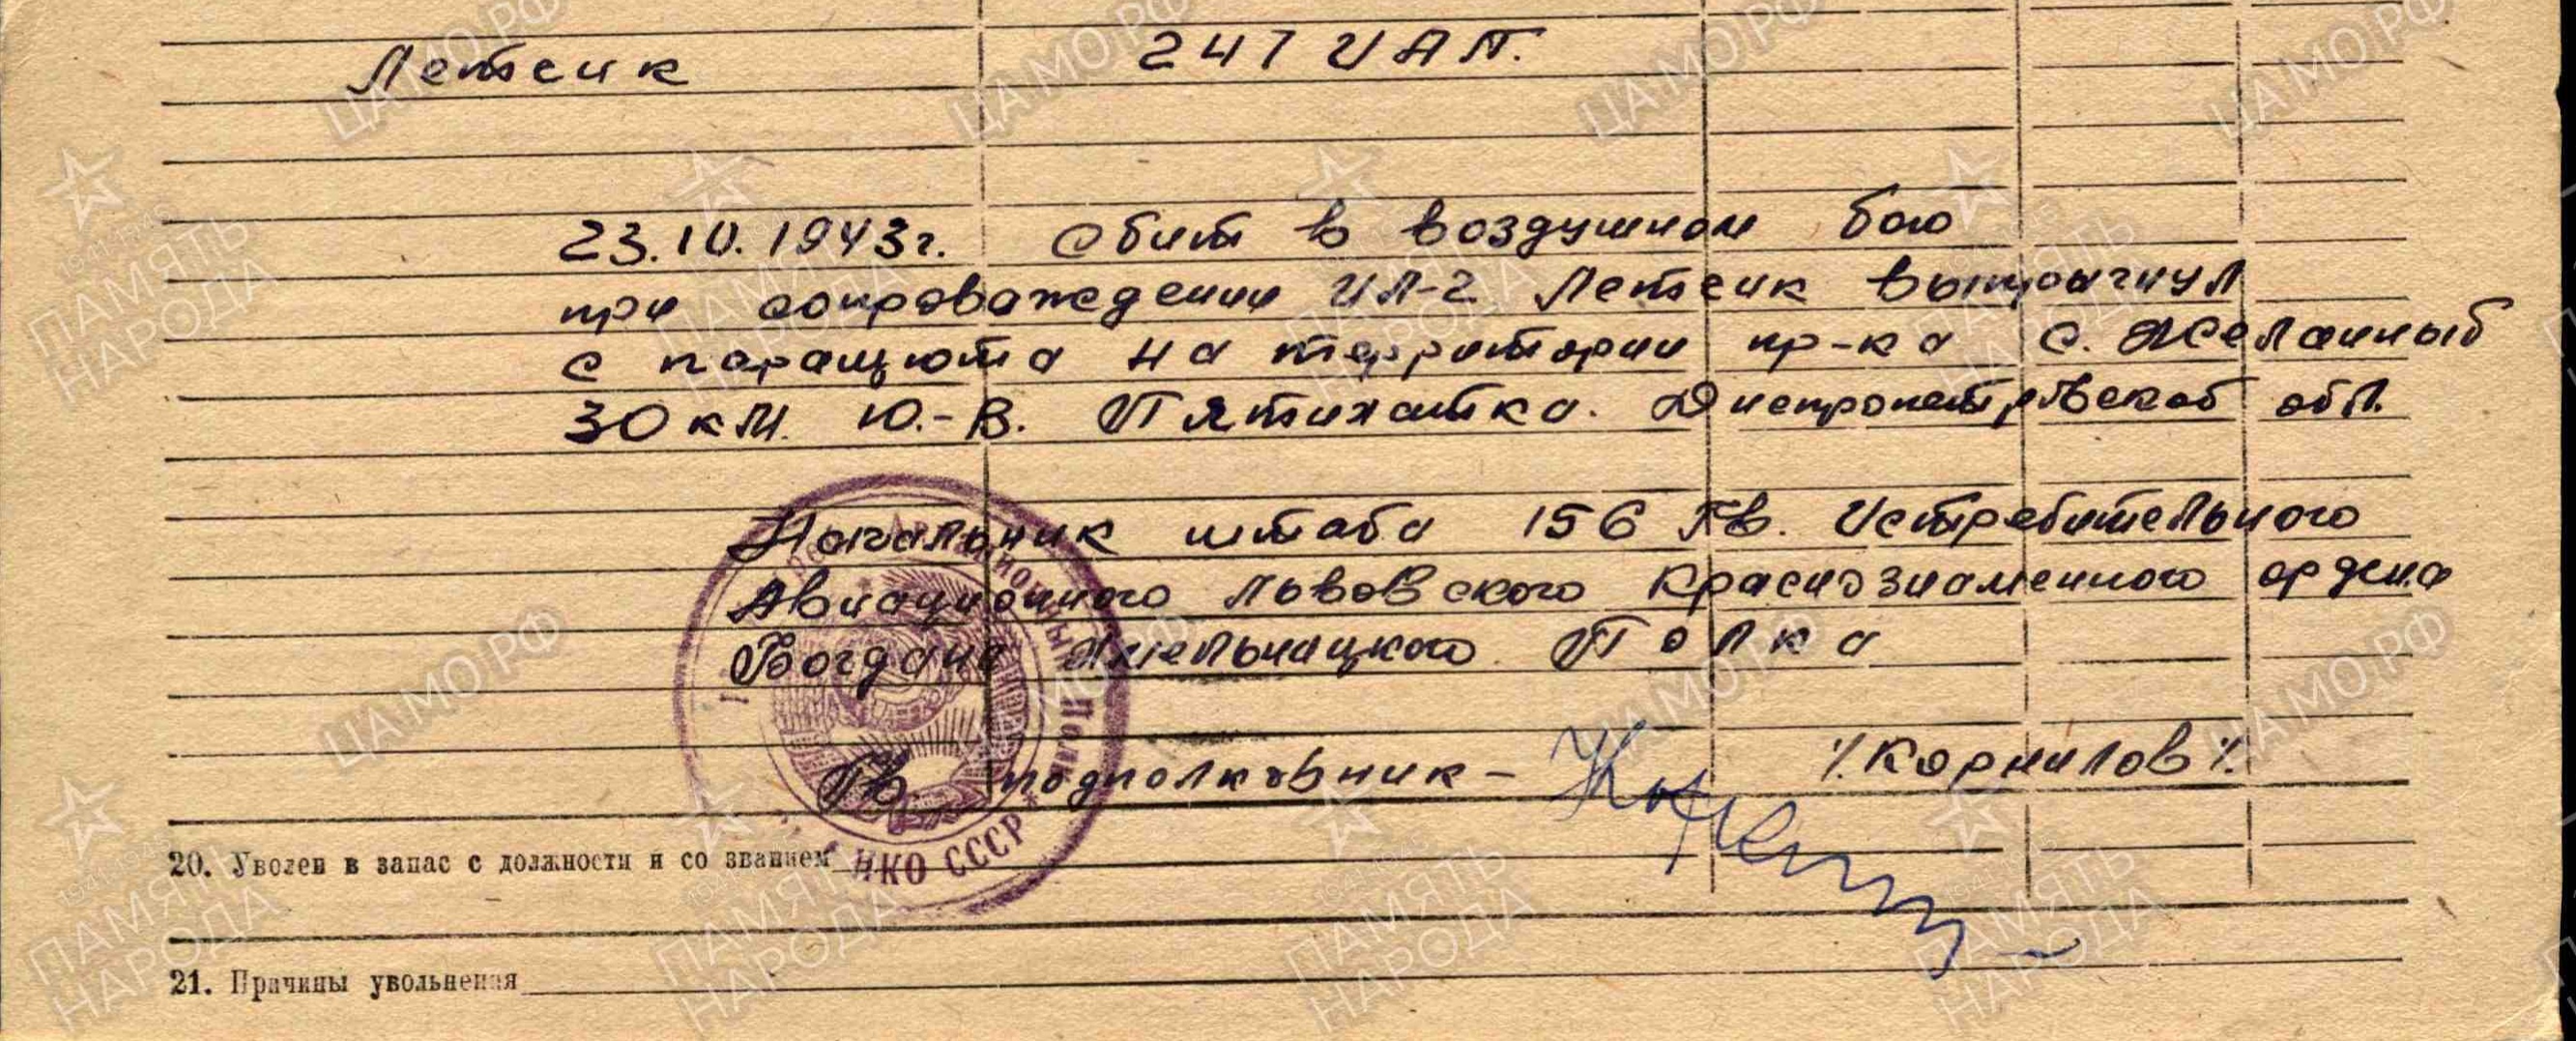 Летсик 247 ИАП.
23.10.1943г. Сбит в воздушном бою
при сопроваждении ИЛ-2 Летсик выпрыгнул
с парашюта на территории пр-ка с. Желанный
30 км. Ю.-В. Пятихатка. Днепропетровской обл.
Начальник штаба 156 Гв. Истребительного
Авиационного Львовского Краснознаменного ордена
Богдана Хмельницкого Полка
Гв. подполковник - /.Корнилов/.
20. Уволен в запас с должности и со званием
НКО СССР
21. Причины увольнения
ЦАМО.РФ
ПАМЯТЬ
НАРОДА